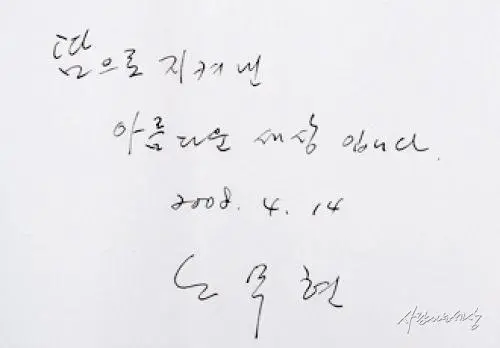 땀으로 지켜낸
아름다운 세상 입니다.
2008. 4. 14
노무현
사람사는세상